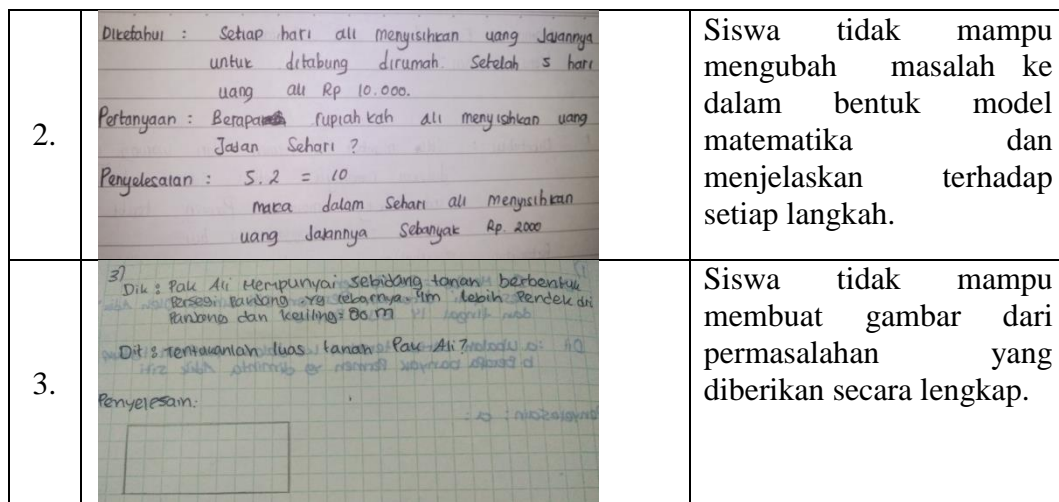 2.
Diketahui : Setiap hari ali menyisihkan uang Jajannya
untuk ditabung dirumah. Setelah 5 hari
uang ali Rp 10.000.
Pertanyaan : Berapa rupiah kah ali menyisihkan uang
Jajan Sehari ?
Penyelesaian : 5.2 = 10
maka dalam Sehari ali menyisihkan
uang Jajannya Sebanyak Rp. 2000
Siswa tidak mampu
mengubah masalah ke
dalam bentuk model
matematika dan
menjelaskan terhadap
setiap langkah.
3.
3)
Dik : Pak Ali Mempunyai sebidang tanah berbentuk
Persegi Panjang yg lebarnya 4m lebih Pendek dri
Panjang dan keliling = 80 m
Dit : Tentukanlah luas tanah Pak Ali ?
Penyelesain :
Siswa tidak mampu
membuat gambar dari
permasalahan yang
diberikan secara lengkap.